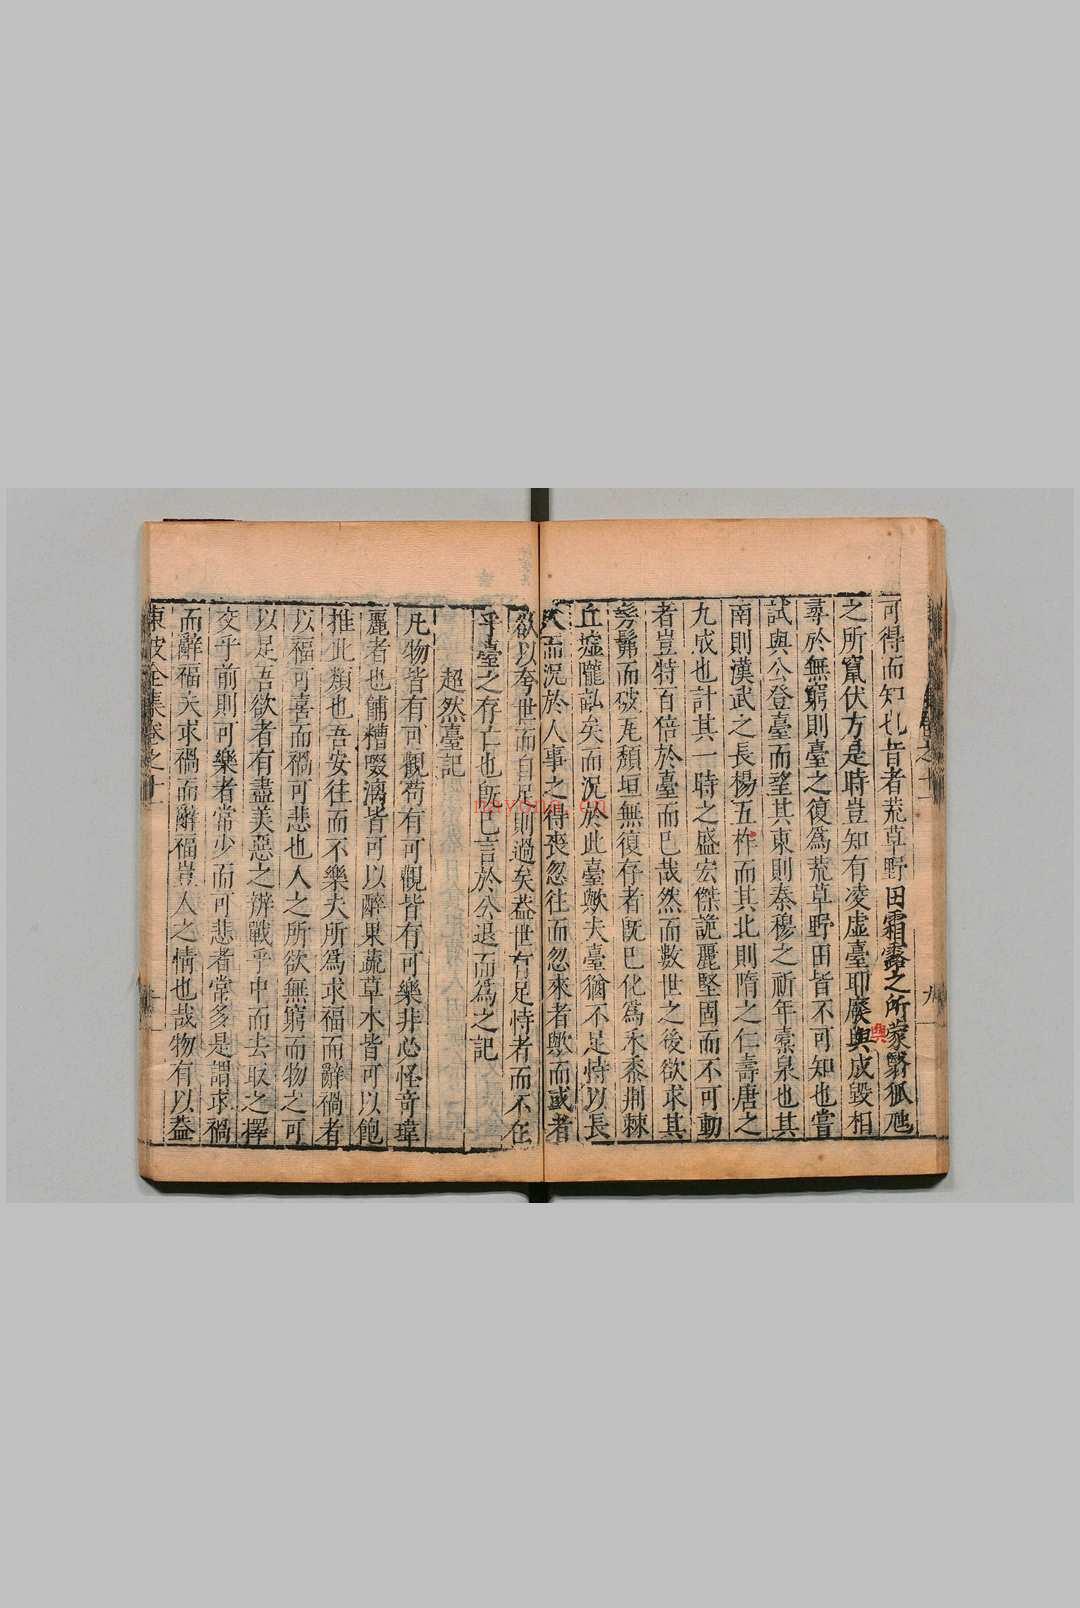 可得而知也昔者荒草野田霜露之所蒙翳狐虺
之所竄伏方是時豈知有凌虛臺耶廢興成毀相
尋於無窮則臺之復爲荒草野田皆不可知也嘗
試與公登臺而望其東則秦穆之祈年橐泉也其
南則漢武之長楊五柞而其北則隋之仁壽唐之
九成也計其一時之盛宏傑詭麗堅固而不可動
者豈特百倍於臺而已哉然而數世之後欲求其
髣髴而破瓦頹垣無復存者旣已化爲禾黍荆棘
丘墟隴畝矣而況於此臺歟夫臺猶不足恃以長
久而況於人事之得喪忽往而忽來者歟而或者
欲以夸世而自足則過矣葢世有足恃者而不在
乎臺之存亡也旣已言於公退而爲之記
超然臺記
凡物皆有可觀苟有可觀皆有可樂非必怪奇瑋
麗者也餔糟啜漓皆可以醉果蔬草木皆可以飽
推此類也吾安往而不樂夫所爲求福而辭禍者
以福可喜而禍可悲也人之所欲無窮而物之可
以足吾欲者有盡美惡之辨戰乎中而去取之擇
交乎前則可樂者常少而可悲者常多是謂求禍
而辭福夫求禍而辭福豈人之情也哉物有以葢
東坡全集卷之十一
九
興
nayona.cn